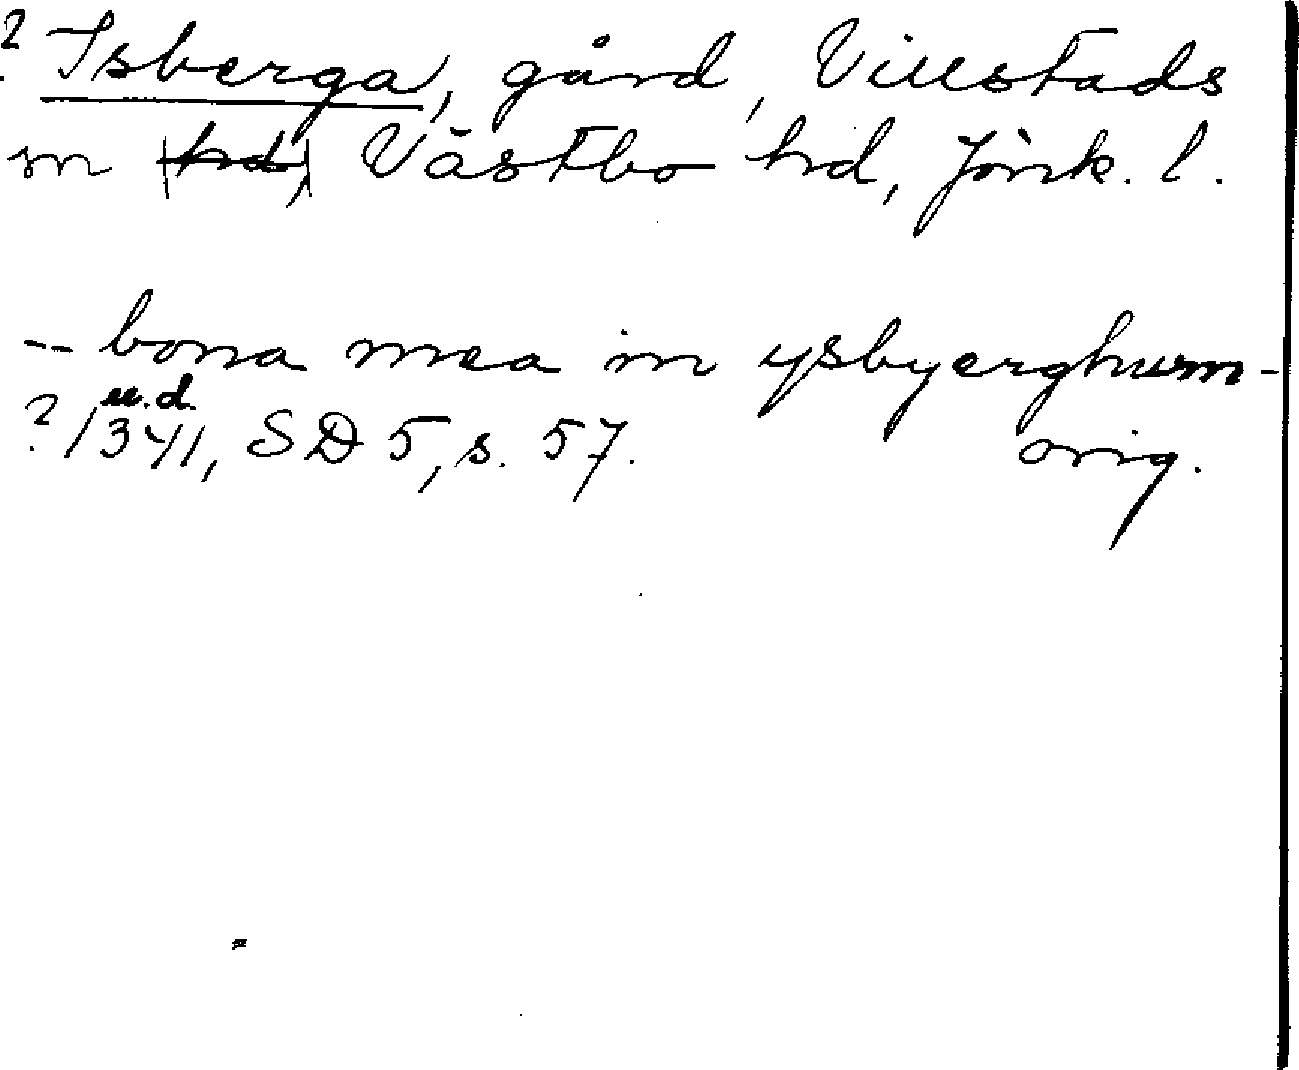 ? Isberga, gård, Villstads
sn hd, Västbo hd, Jönk. l.
-- bona mea in ysbyerghum -
u.d.
? 1341, SD 5, s. 57. orig.